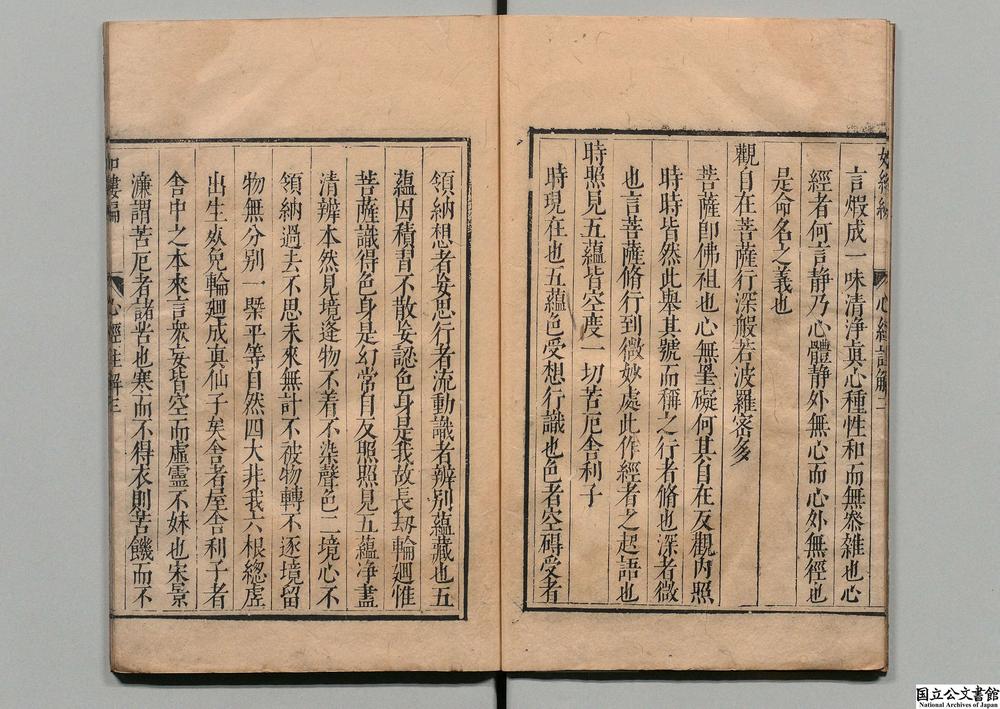 言煆成一味清淨眞心種性和而無叅雜也心
經者何言靜乃心體靜外無心而心外無徑也
是命名之義也
觀自在菩薩行深般若波羅密多
菩薩卽佛祖也心無罣礙何其自在反觀内照
時時皆然此舉其號而稱之行者脩也深者微
也言菩薩脩行到微妙處此作經者之起語也
時照見五蘊皆空度一切苦厄舍利子
時現在也五蘊色受想行識也色者空碍受者
領納想者妄思行者流動識者辨别蘊藏也五
蘊因積聚不散妄認色身是我故長刼輪廻惟
菩薩識得色身是幻常自反照照見五蘊净盡
清辨本然見境逢物不着不染聲色二境心不
領納過去不思未來無計不被物轉不逐境留
物無分别一槩平等自然四大非我六根總虗
出生死免輪廻成眞仙子矣舍者屋舍利子者
舍中之本來言衆妄皆空而虛靈不妹也宋景
濂謂苦厄者諸苦也寒而不得衣則苦饑而不
心經註解三
国立公文書館
National Archives of Japan